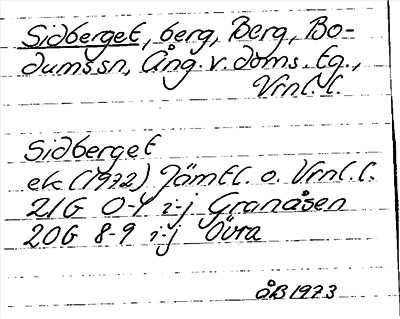 Sidberget, berg, Berg, Bo-
dumssn, Ång. v. doms. tg.,
Vrnl. l.
Sidberget
ek (1972) Jämtl. o. Vrnl. l.
21G 0-1 i-j Granåsen
20G 8-9 i-j Övra
ÅB 1973